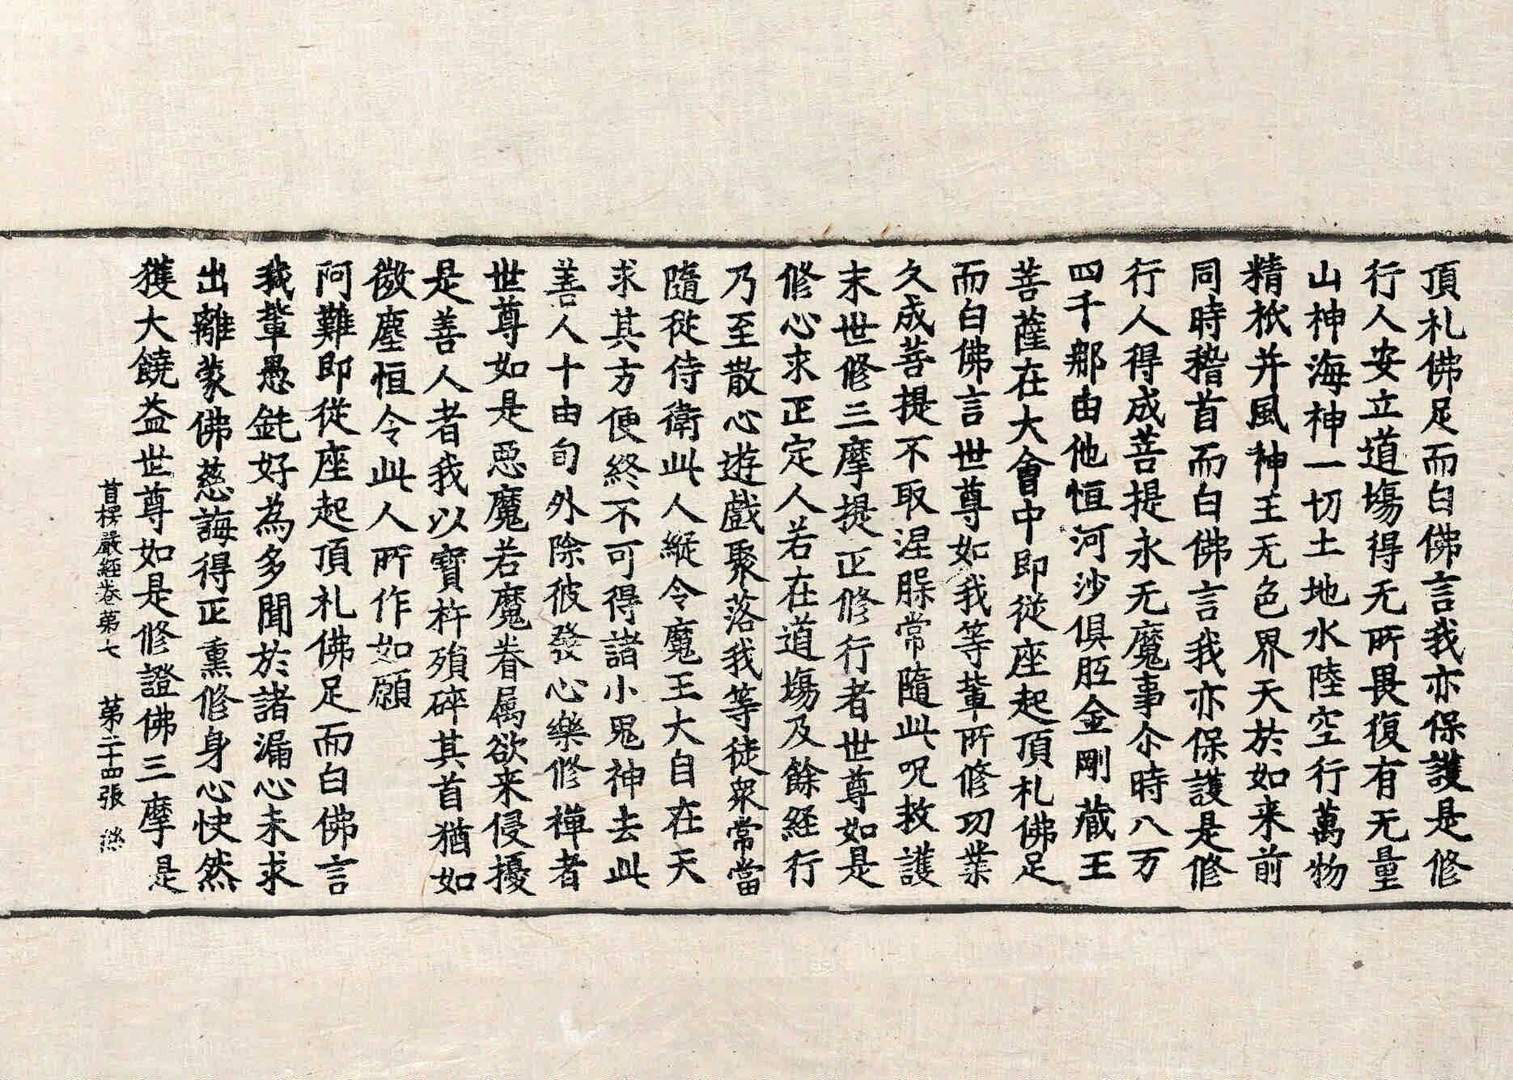 頂礼佛足而白佛言我亦保護是修
行人安立道塲得无所畏復有无量
山神海神一切土地水陸空行萬物
精祇并風神王无色界天於如来前
同時稽首而白佛言我亦保護是修
行人得成菩提永无魔事尒時八万
四千郍由他恒河沙俱胝金剛藏王
菩薩在大會中即從座起頂礼佛足
而白佛言世尊如我等輩所修功業
久成菩提不取涅槃常隨此呪救護
末世修三摩提正修行者世尊如是
修心求正定人若在道塲及餘経行
乃至散心遊戲聚落我等徒衆常當
隨從侍衛此人縱令魔王大自在天
求其方便終不可得諸小鬼神去此
善人十由旬外除彼發心樂修禪者
世尊如是惡魔若魔眷属欲来侵擾
是善人者我以寶杵殞碎其首猶如
微塵恒令此人所作如願
阿難即從座起頂礼佛足而白佛言
我輩愚鈍好為多聞於諸漏心未求
出離蒙佛慈誨得正熏修身心快然
獲大饒益世尊如是修證佛三摩是
首楞嚴経卷第七 第二十四張